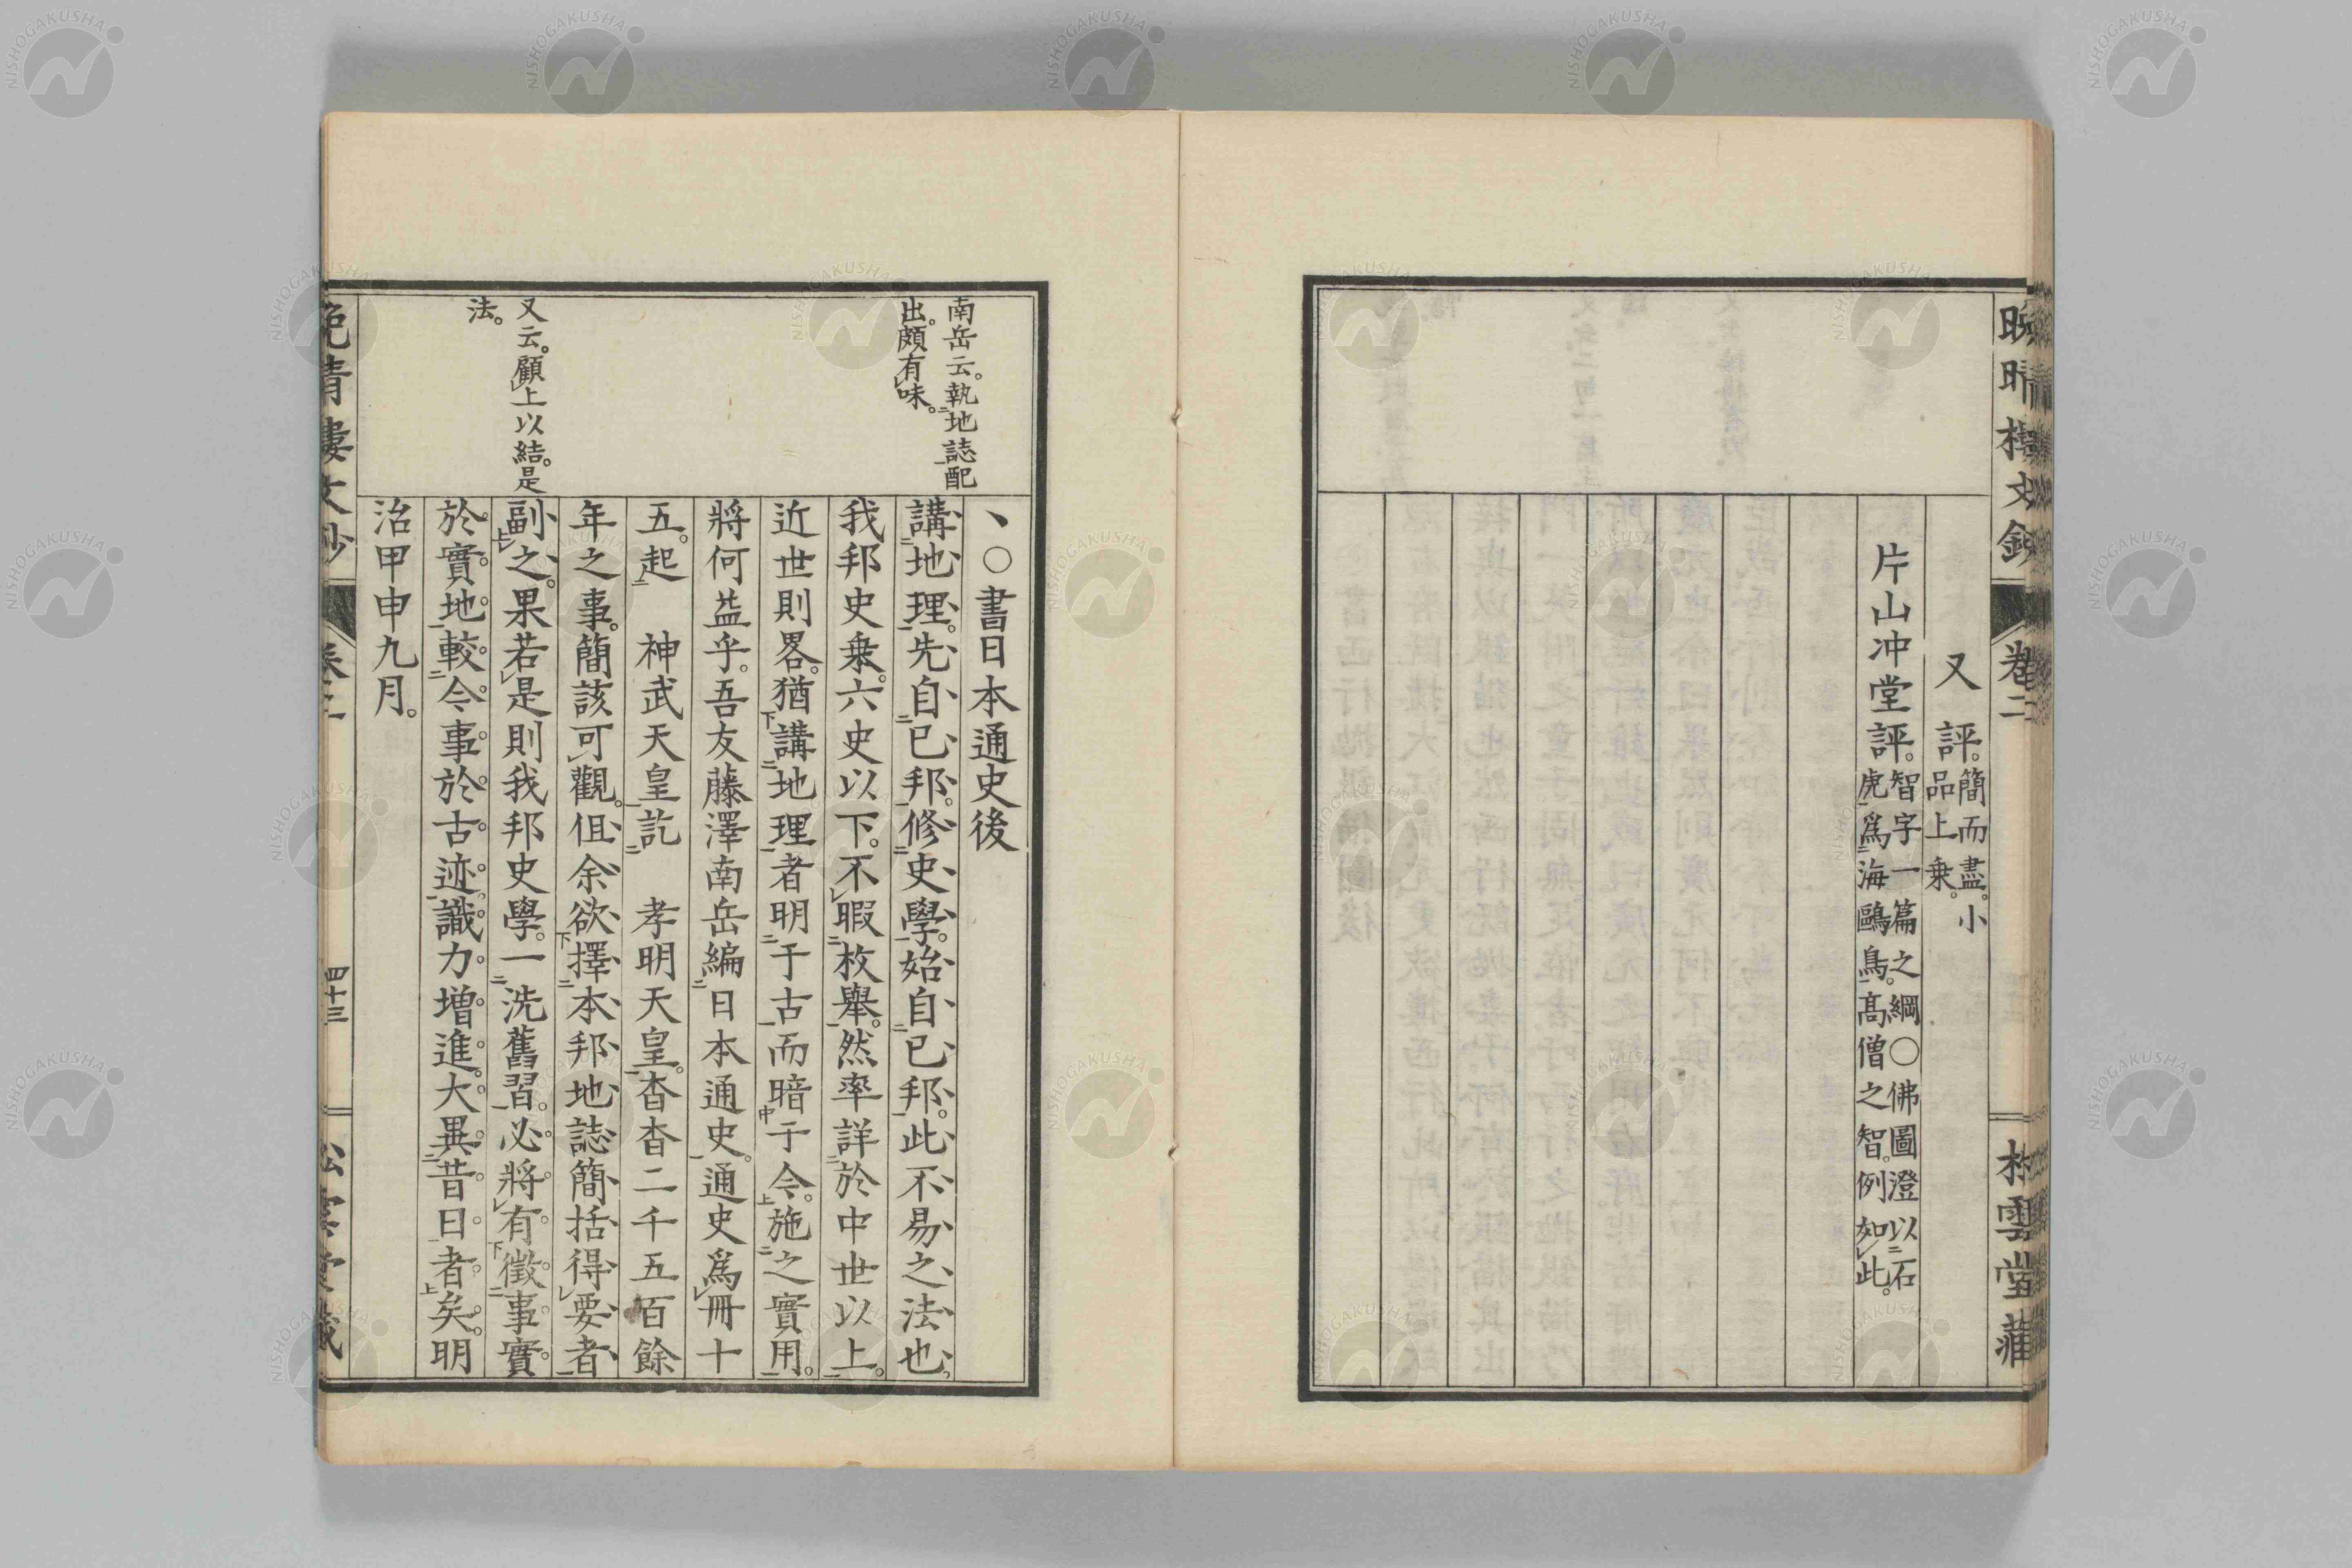 晩晴樓文鈔 卷二 松雲堂藏
又評。簡而盡。小
品上乘。
片山冲堂評。智字一篇之綱○佛圖澄以石
虎爲海鷗鳥。高僧之智。例如此。
南岳云。執地誌配
出。頗有味。
又云。顧上以結。是
法。
丶○書日本通史後
講地理。先自己邦。修史學。始自己邦。此不易之法也。
我邦史乘。六史以下。不暇枚舉。然率詳於中世以上。
近世則畧。猶講地理者明于古而暗于今。施之實用。
將何益乎。吾友藤澤南岳編日本通史。通史爲冊十
五。起 神武天皇訖 孝明天皇。杳杳二千五百餘
年之事。簡該可觀。但余欲擇本邦地誌簡括得要者
副之。果若是則我邦史學。一洗舊習。必將有徵事實
於實地較今事於古迹。識力增進。大異昔日者矣。明
治甲申九月。
晩晴樓文鈔 卷二 四十三 松雲堂藏
NISHOGAKUSHA